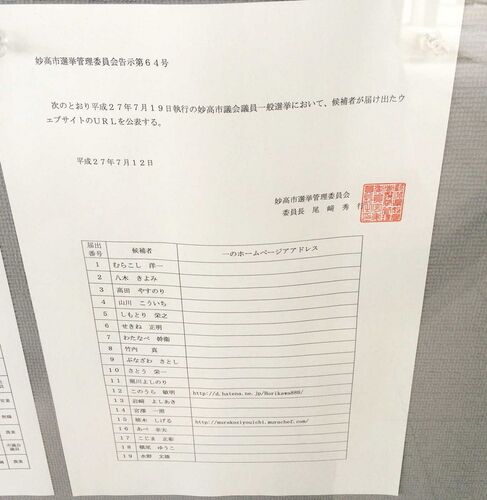 妙高市選挙管理委員会告示第64号
次のとおり平成27年7月19日執行の妙高市議会議員一般選挙において、候補者が届け出たウ
ェブサイトのURLを公表する。
平成27年7月12日
妙高市選挙管理委員会
委員長 尾﨑 秀
届出番号 候補者 一のホームページアドレス
1 むらこし 洋一
2 八木 きよみ
3 高田 やすのり
4 山川 こういち
5 しもとり 栄之
6 せきね 正明
7 わたなべ 幹衛
8 竹内 真
9 ぶなざわ さとし
10 さとう 栄一
11 堀川よしのり
12 このうら 敏明 http://d.hatena.ne.jp/Horikawa888/
13 岩﨑 よしあき
14 宮澤 一照
15 植木 しげる http://murakosiyouichi.murochef.com/
16 あべ 幸夫
17 こじま 正彰
18 横尾 ゆうこ
19 水野 文雄